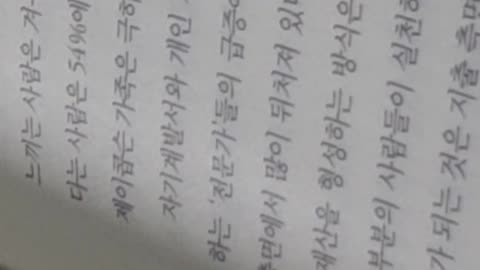 느끼는 사람은 겨
다는 사람은 54%에
제이콥슨 가족은 극히
자기계발서와 개인
하는 '전문가'들의 급증
측면에서 많이 뒤처져 있
재산을 형성하는 방식은
부분의 사람들이 실천하
가 되는 것은 지출 측면